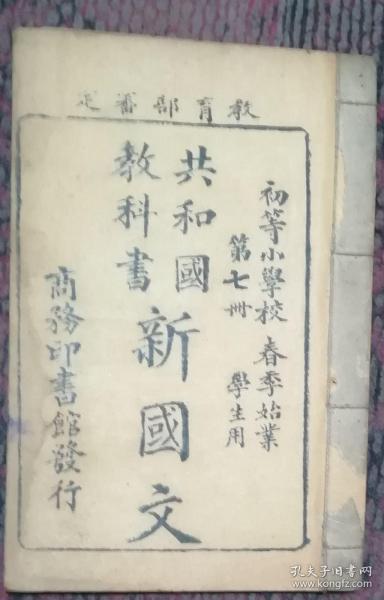 教育部審定
初等小學校 春季始業
第七册 學生用
共和國
教科書
新國文
商務印書館發行
孔夫子旧书网